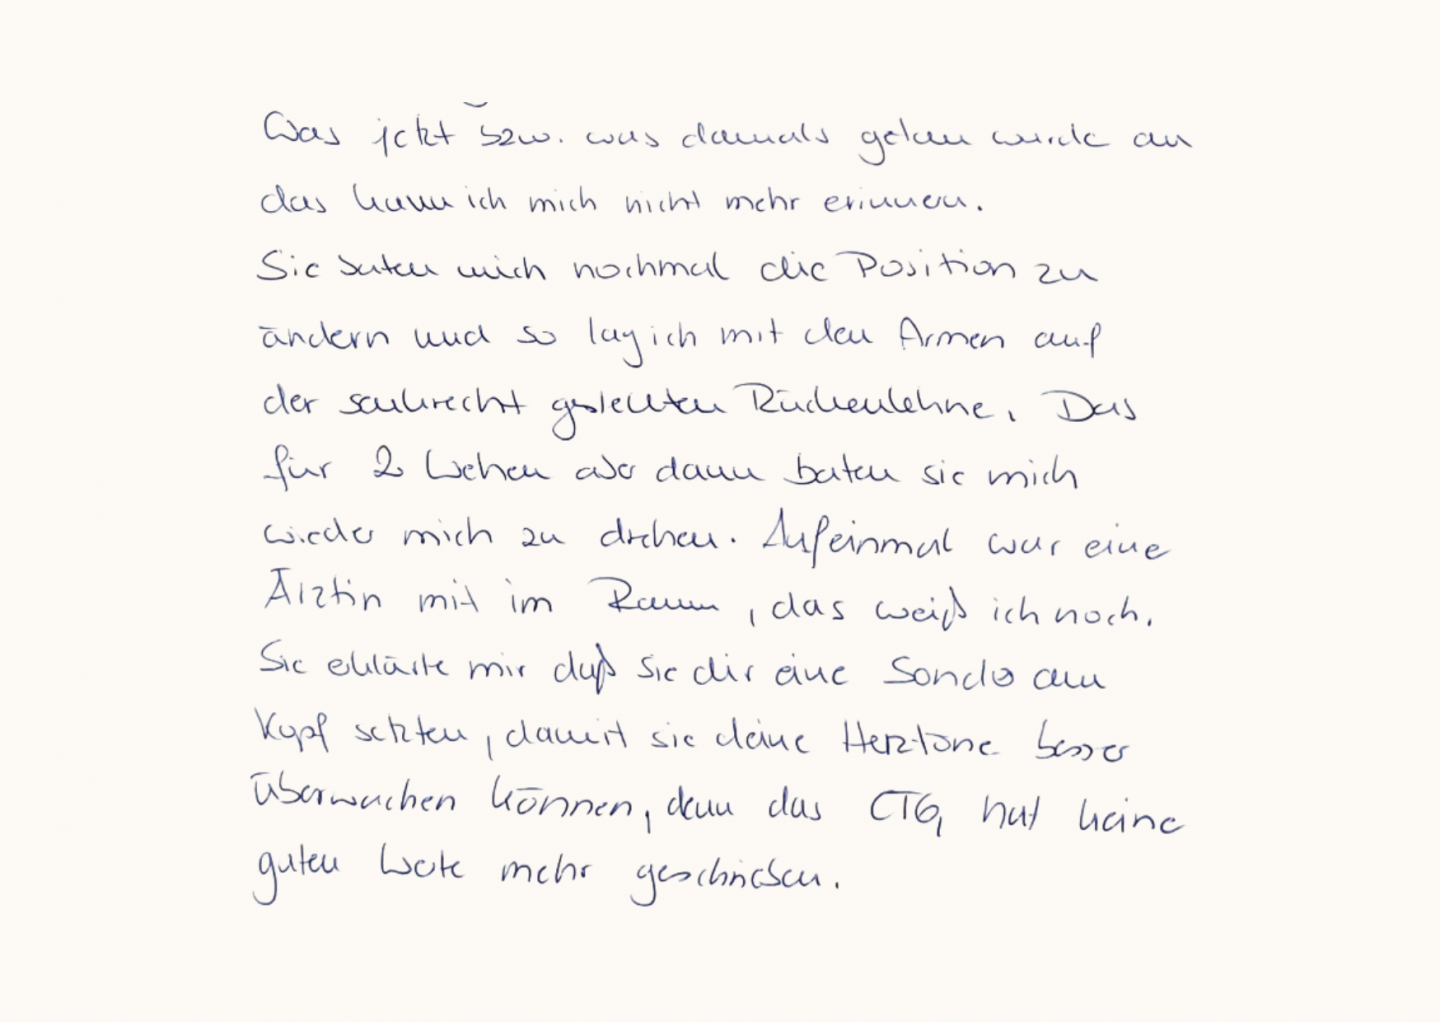 Was jetzt bzw. was damals getan wurde an
das kann ich mich nicht mehr erinnern.
Sie baten mich nochmal die Position zu
ändern und so lag ich mit den Armen auf
der senkrecht gestellten Rückenlehne. Das
für 2 Wehen aber dann baten sie mich
wieder mich zu drehen. Aufeinmal war eine
Ärztin mit im Raum, das weiß ich noch.
Sie erklärte mir daß sie dir eine Sonde am
Kopf setzten, damit sie deine Herztöne besser
überwachen können, denn das CTG, hat keine
guten Werte mehr geschrieben.